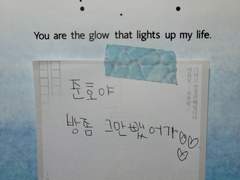 You are the glow that lights up my life.
준호야
방좀 그만뺐어가♡♡♡